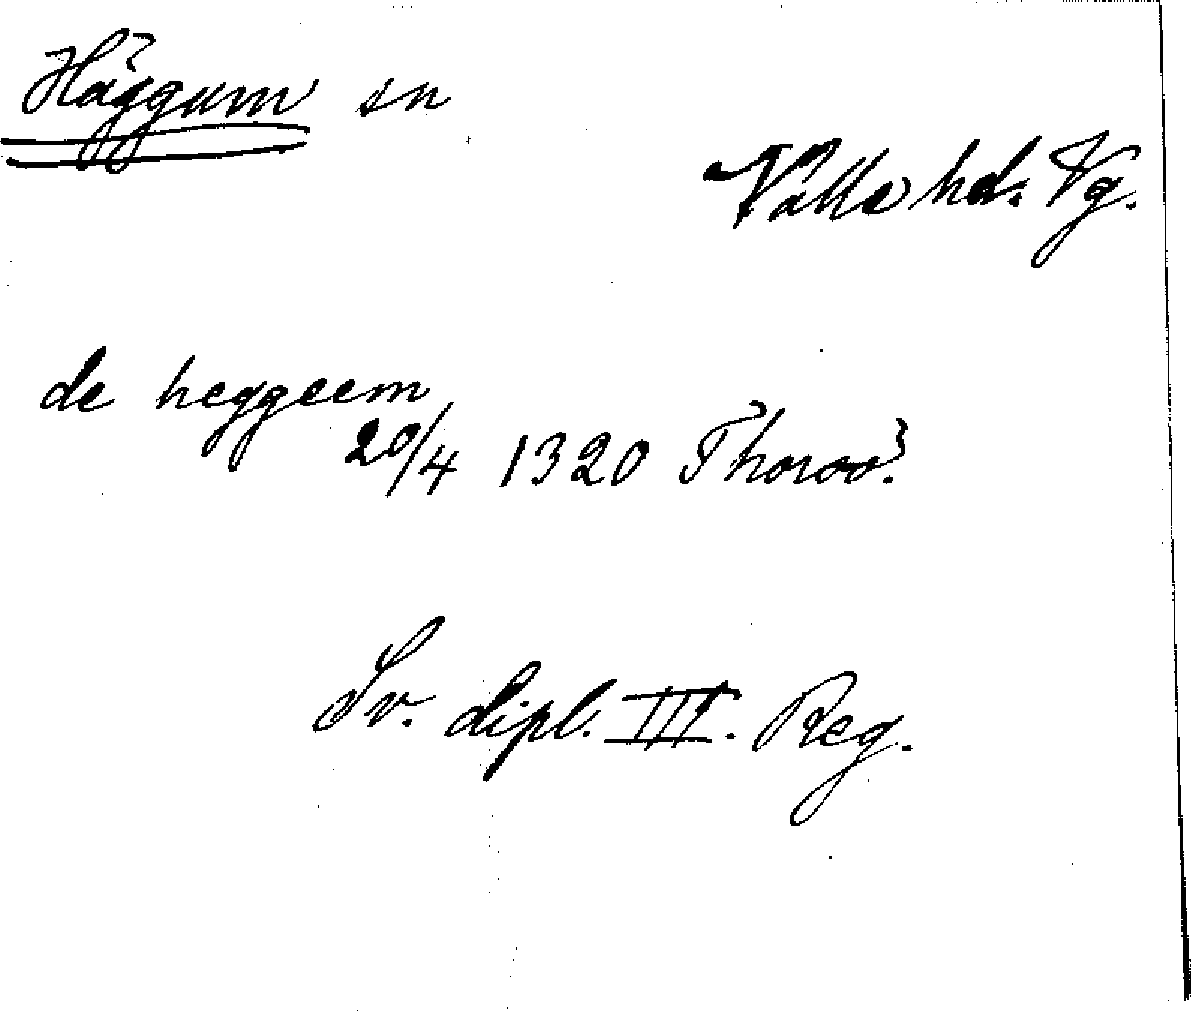 Häggum sn
Valle hd. Vg.
de heggeem
20/4 1320 Thoroo?
Sv. dipl. III. Reg.